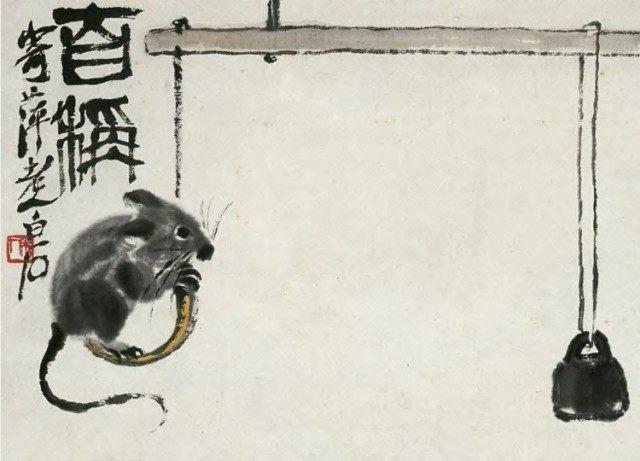 自稱
寄萍老人白石